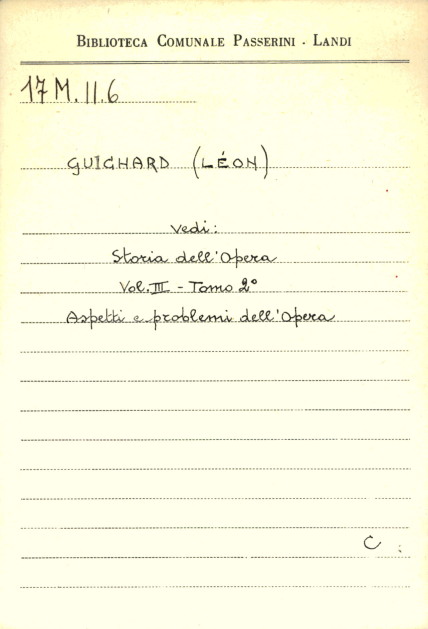 BIBLIOTECA COMUNALE PASSERINI - LANDI
17 M. II. 6
GUICHARD (LÉON)
Vedi:
Storia dell'Opera
Vol. III - Tomo 2°
Aspetti e problemi dell'Opera
C.